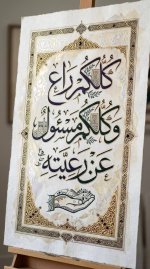 كُلُّكُمْ رَاعٍ
وَكُلُّكُمْ مَسْئُولٌ
عَنْ رَعِيَّتِهِ